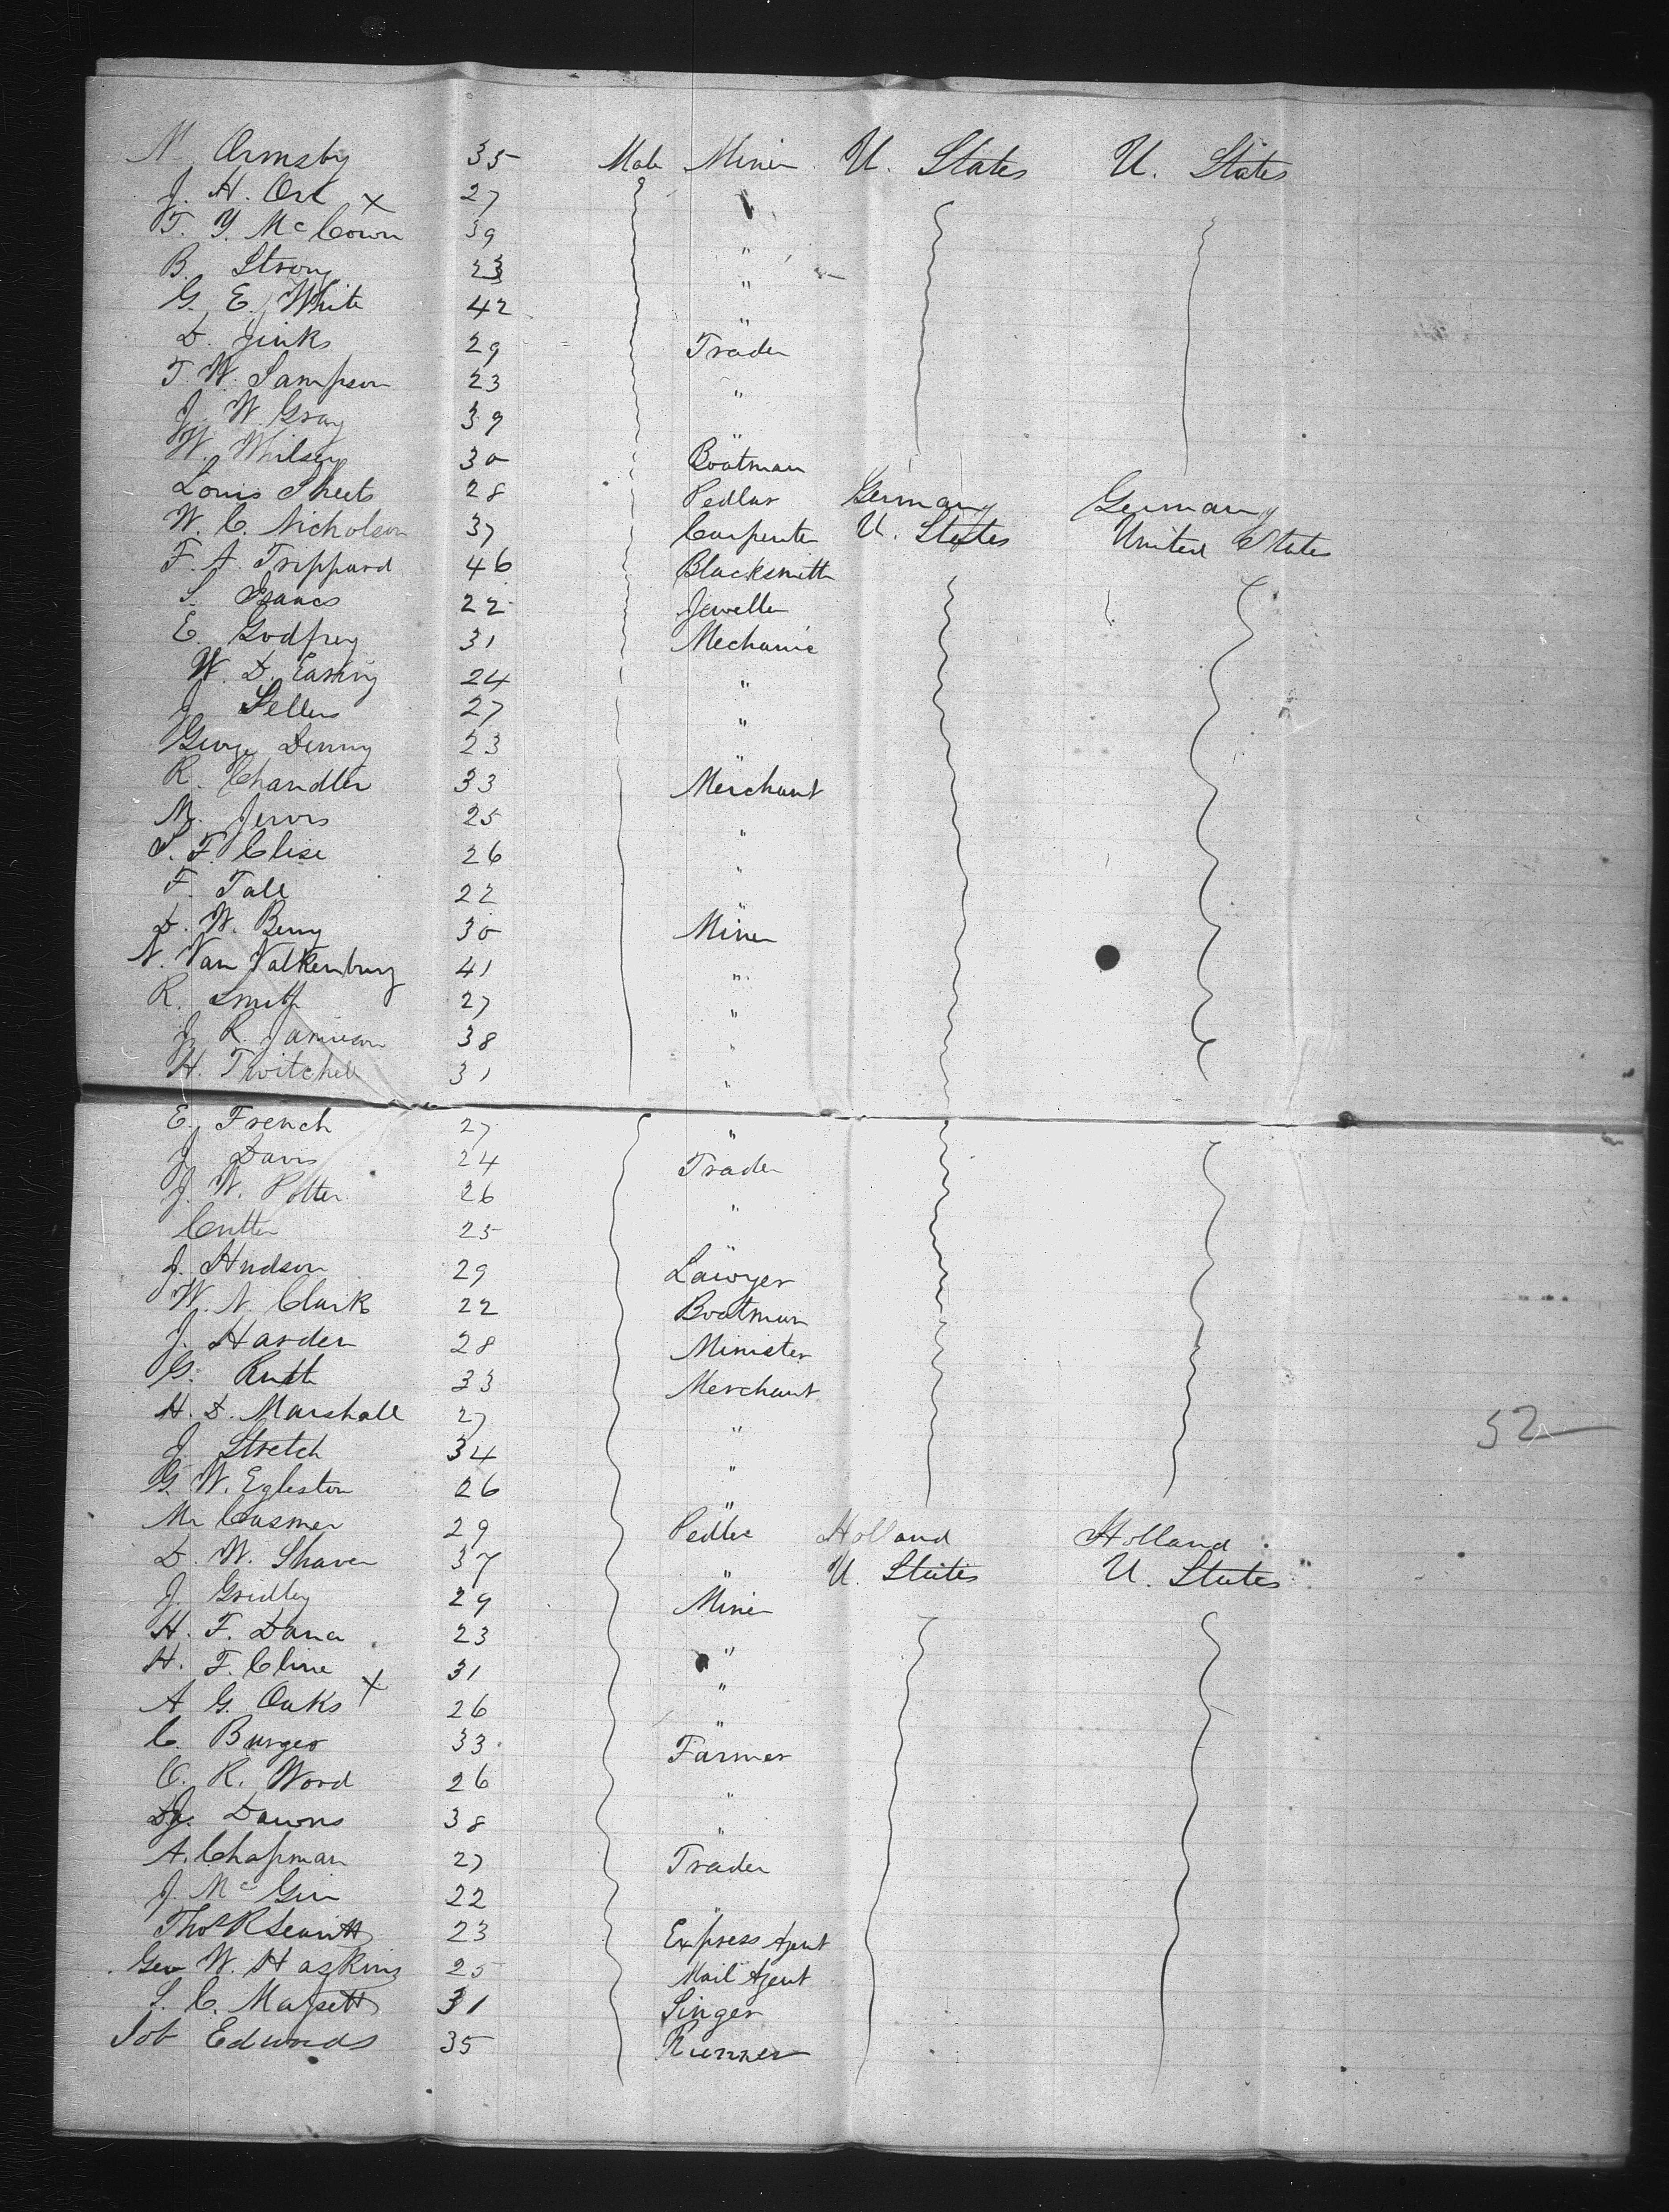 N. Ormsby 35 Male Miner U. States U. States
J. H. Ork x 27 "
T. Y. McCown 39 "
B. Strong 23 "
G. E. White 42 "
D. Jinks 29 Trader
T. W. Sampson 23 "
J. W. Gray 39 "
W. Wilsey 30 Boatman
Louis Sheets 28 Pedlar Germany Germany
W. C. Nicholson 37 Carpenter U. States United States
F. A. Trippard 46 Blacksmith
S. Isaacs 22 Jeweller
E. Godfrey 31 Mechanic
W. D. 24 "
J. Sellers 27 "
George Denny 23 "
R. Chandler 33 Merchant
M. Jervis 25 "
S. F. Clise 26 "
F. Tall 22 "
D. W. Berry 30 Miner
N. Van Valkenburg 41 "
R. Smith 27 "
J. R. Jamieson 38 "
H. Twitchell 31 "
E. French 27 "
J. Davis 24 Trader
J. W. Potter 26 "
Cutter 25 "
J. Hudson 29 Lawyer
W. N. Clark 22 Boatman
J. Harden 28 Minister
G. Ruth 33 Merchant
H. D. Marshall 27 "
J. Stretch 34 "
G. W. Egleston 26 "
Mr Casmer 29 Pedler Holland Holland
D. W. Shaver 37 " U. States U. States
J. Gridley 29 Miner
H. F. Dana 23 "
H. F. Cline 31 "
A. G. Oaks x 26 "
C. Burger 33 Farmer
C. R. Word 26 "
J. Downs 38 "
A. Chapman 27 Trader
J. McGin 22 "
Thos R 23 Express Agent
Geo W. Haskins 25 Mail Agent
S. C. Massett 31 Singer
Job Edwards 35 Runner
52